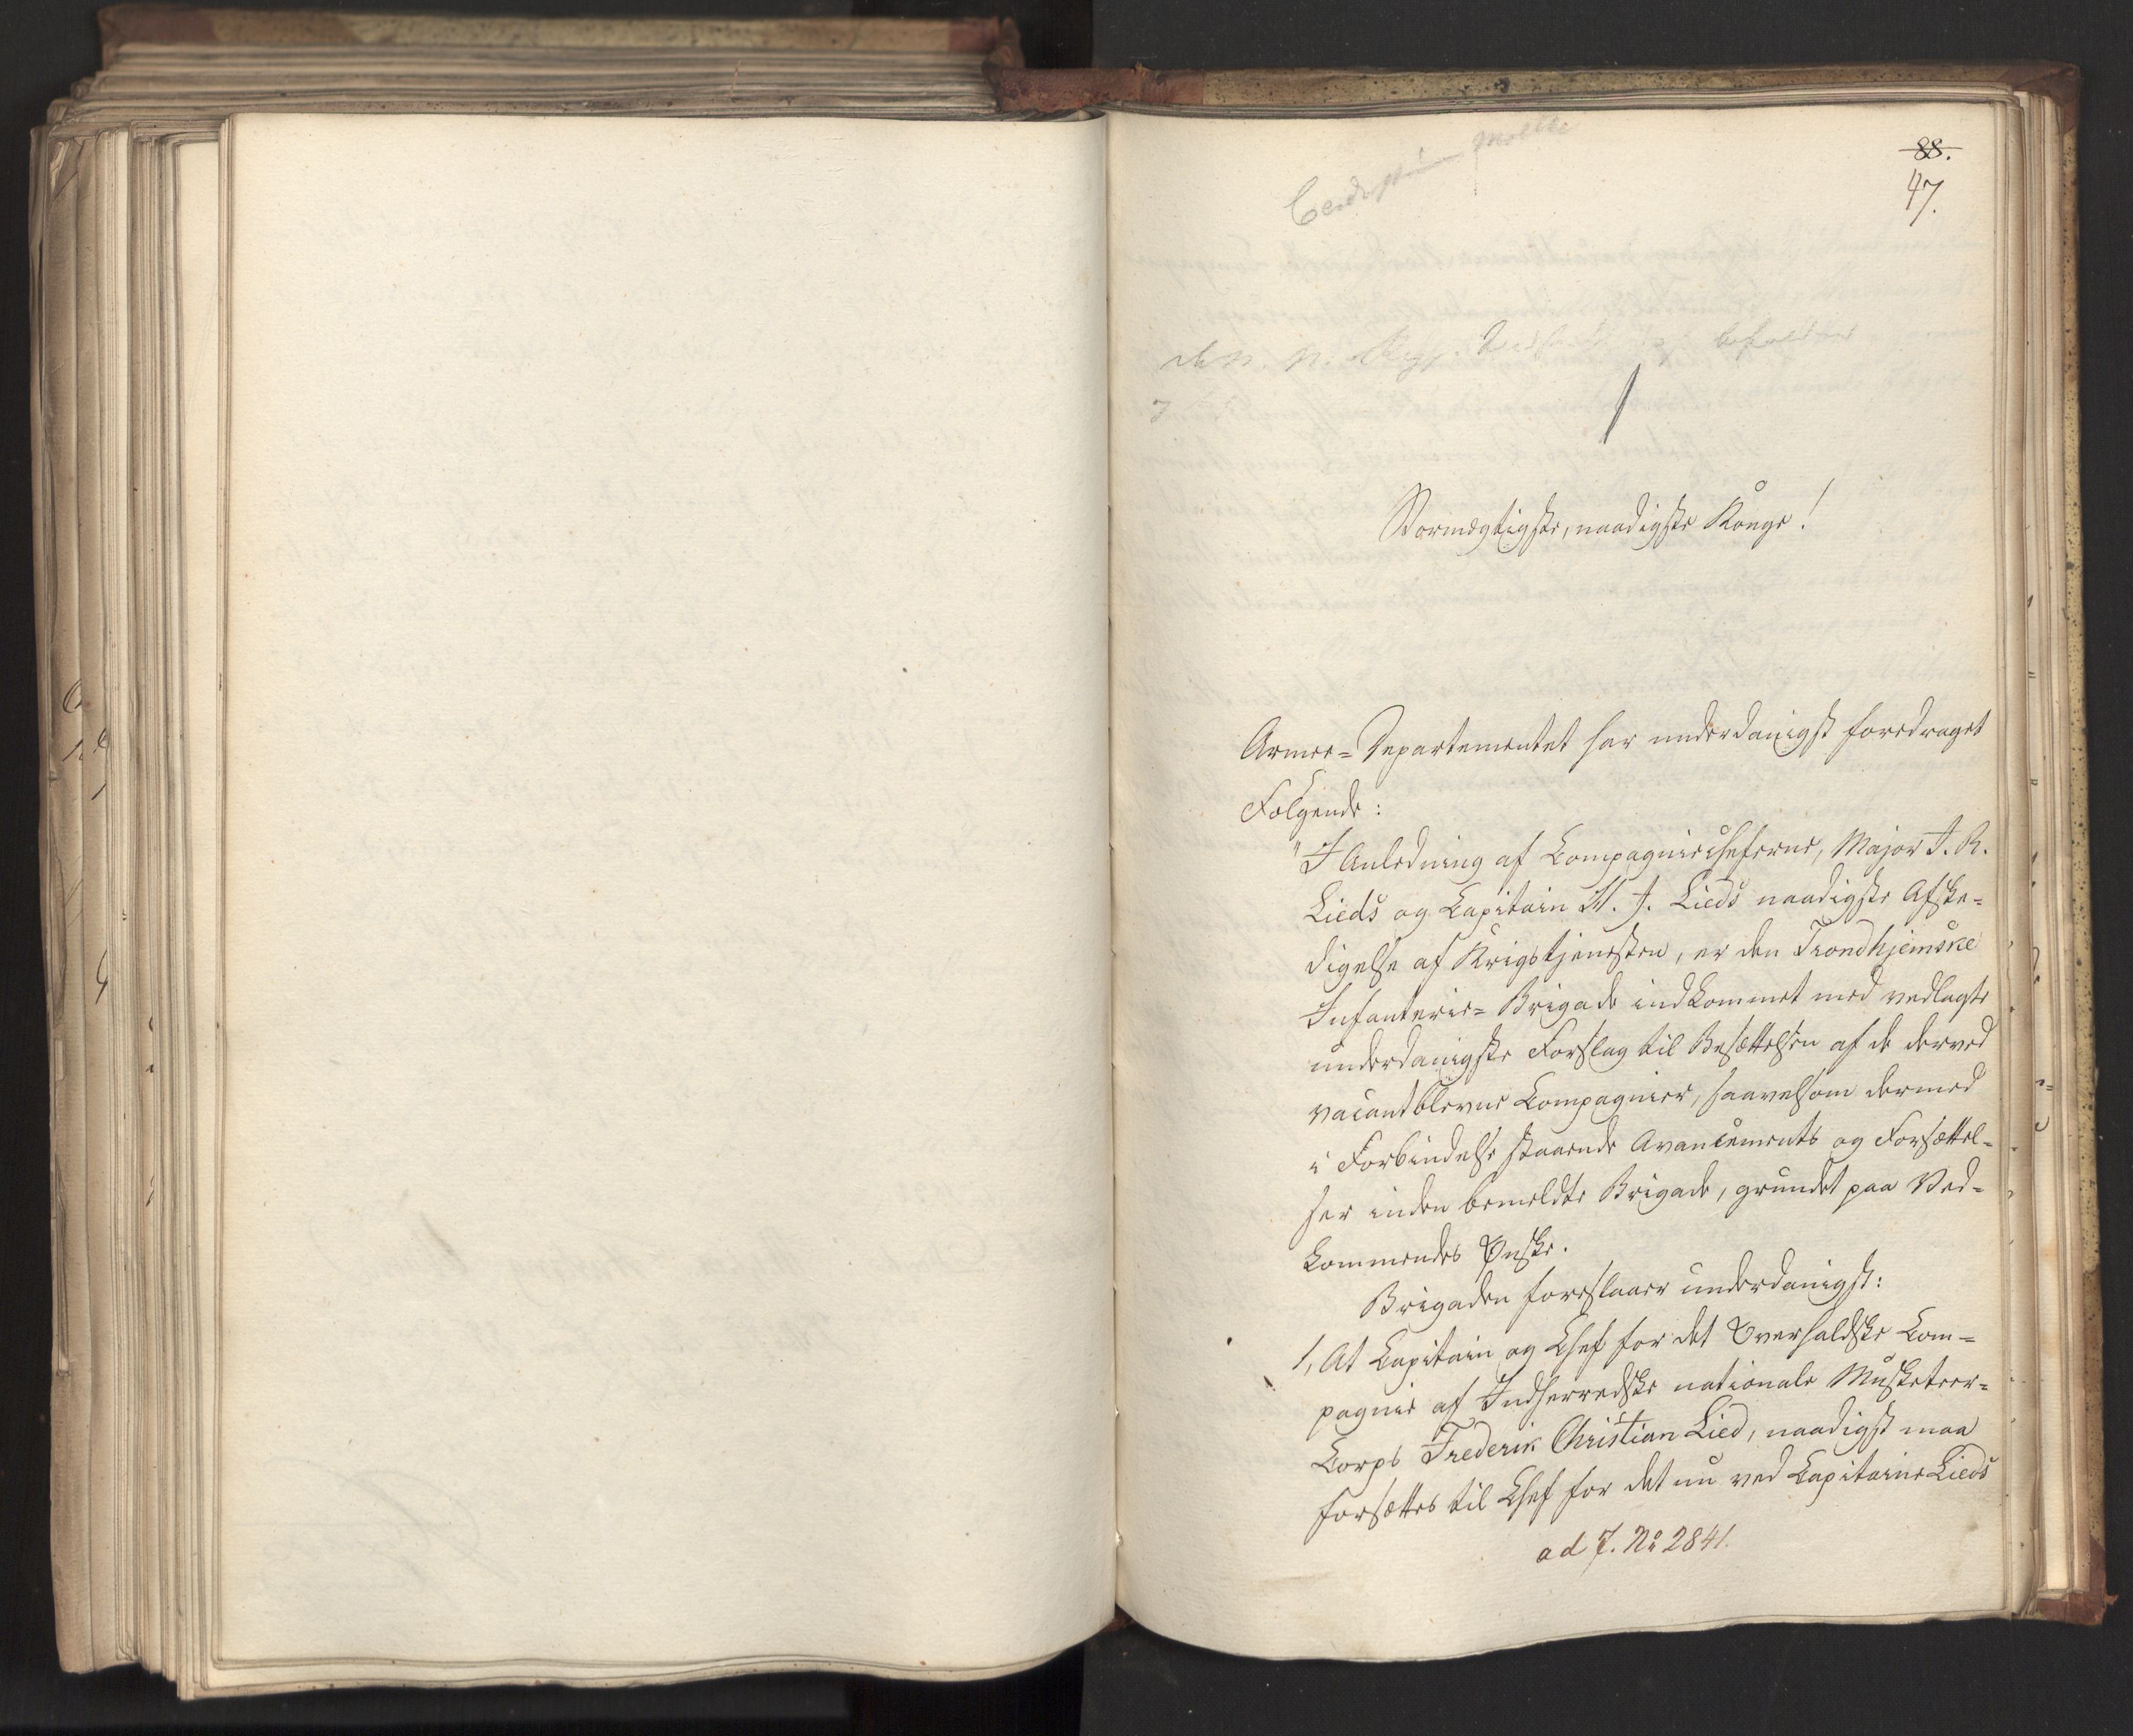 88.
47.
Stormægtigste, naadigste Konge!
Armee-Departementet har underdanigst foredraget
Følgende:
"I Anledning af Compagniecheferne, Major J. R.
Lieds og Capitain H. J. Lieds naadigste Afske-
digelse af Krigstjenesten, er den Trondhjemske
Infanterie-Brigade indkommet med vedlagte
underdanigste Forslag til Besættelsen af de derved
vacantblevne Compagnier, saavelsom dermed
i Forbindelse staaende Avancements og Forsættel-
ser inden bemeldte Brigade, grundet paa Ved-
kommendes Ønske.
Brigaden foreslaaer underdanigst:
1, At Capitain og Chef for det Overhaldske Com-
pagnie af Indherredske nationale Musketeer-
Corps Frederik Christian Lied, naadigst maa
forsættes til Chef for det nu ved Capitaine Lieds
ad J. No 2841.